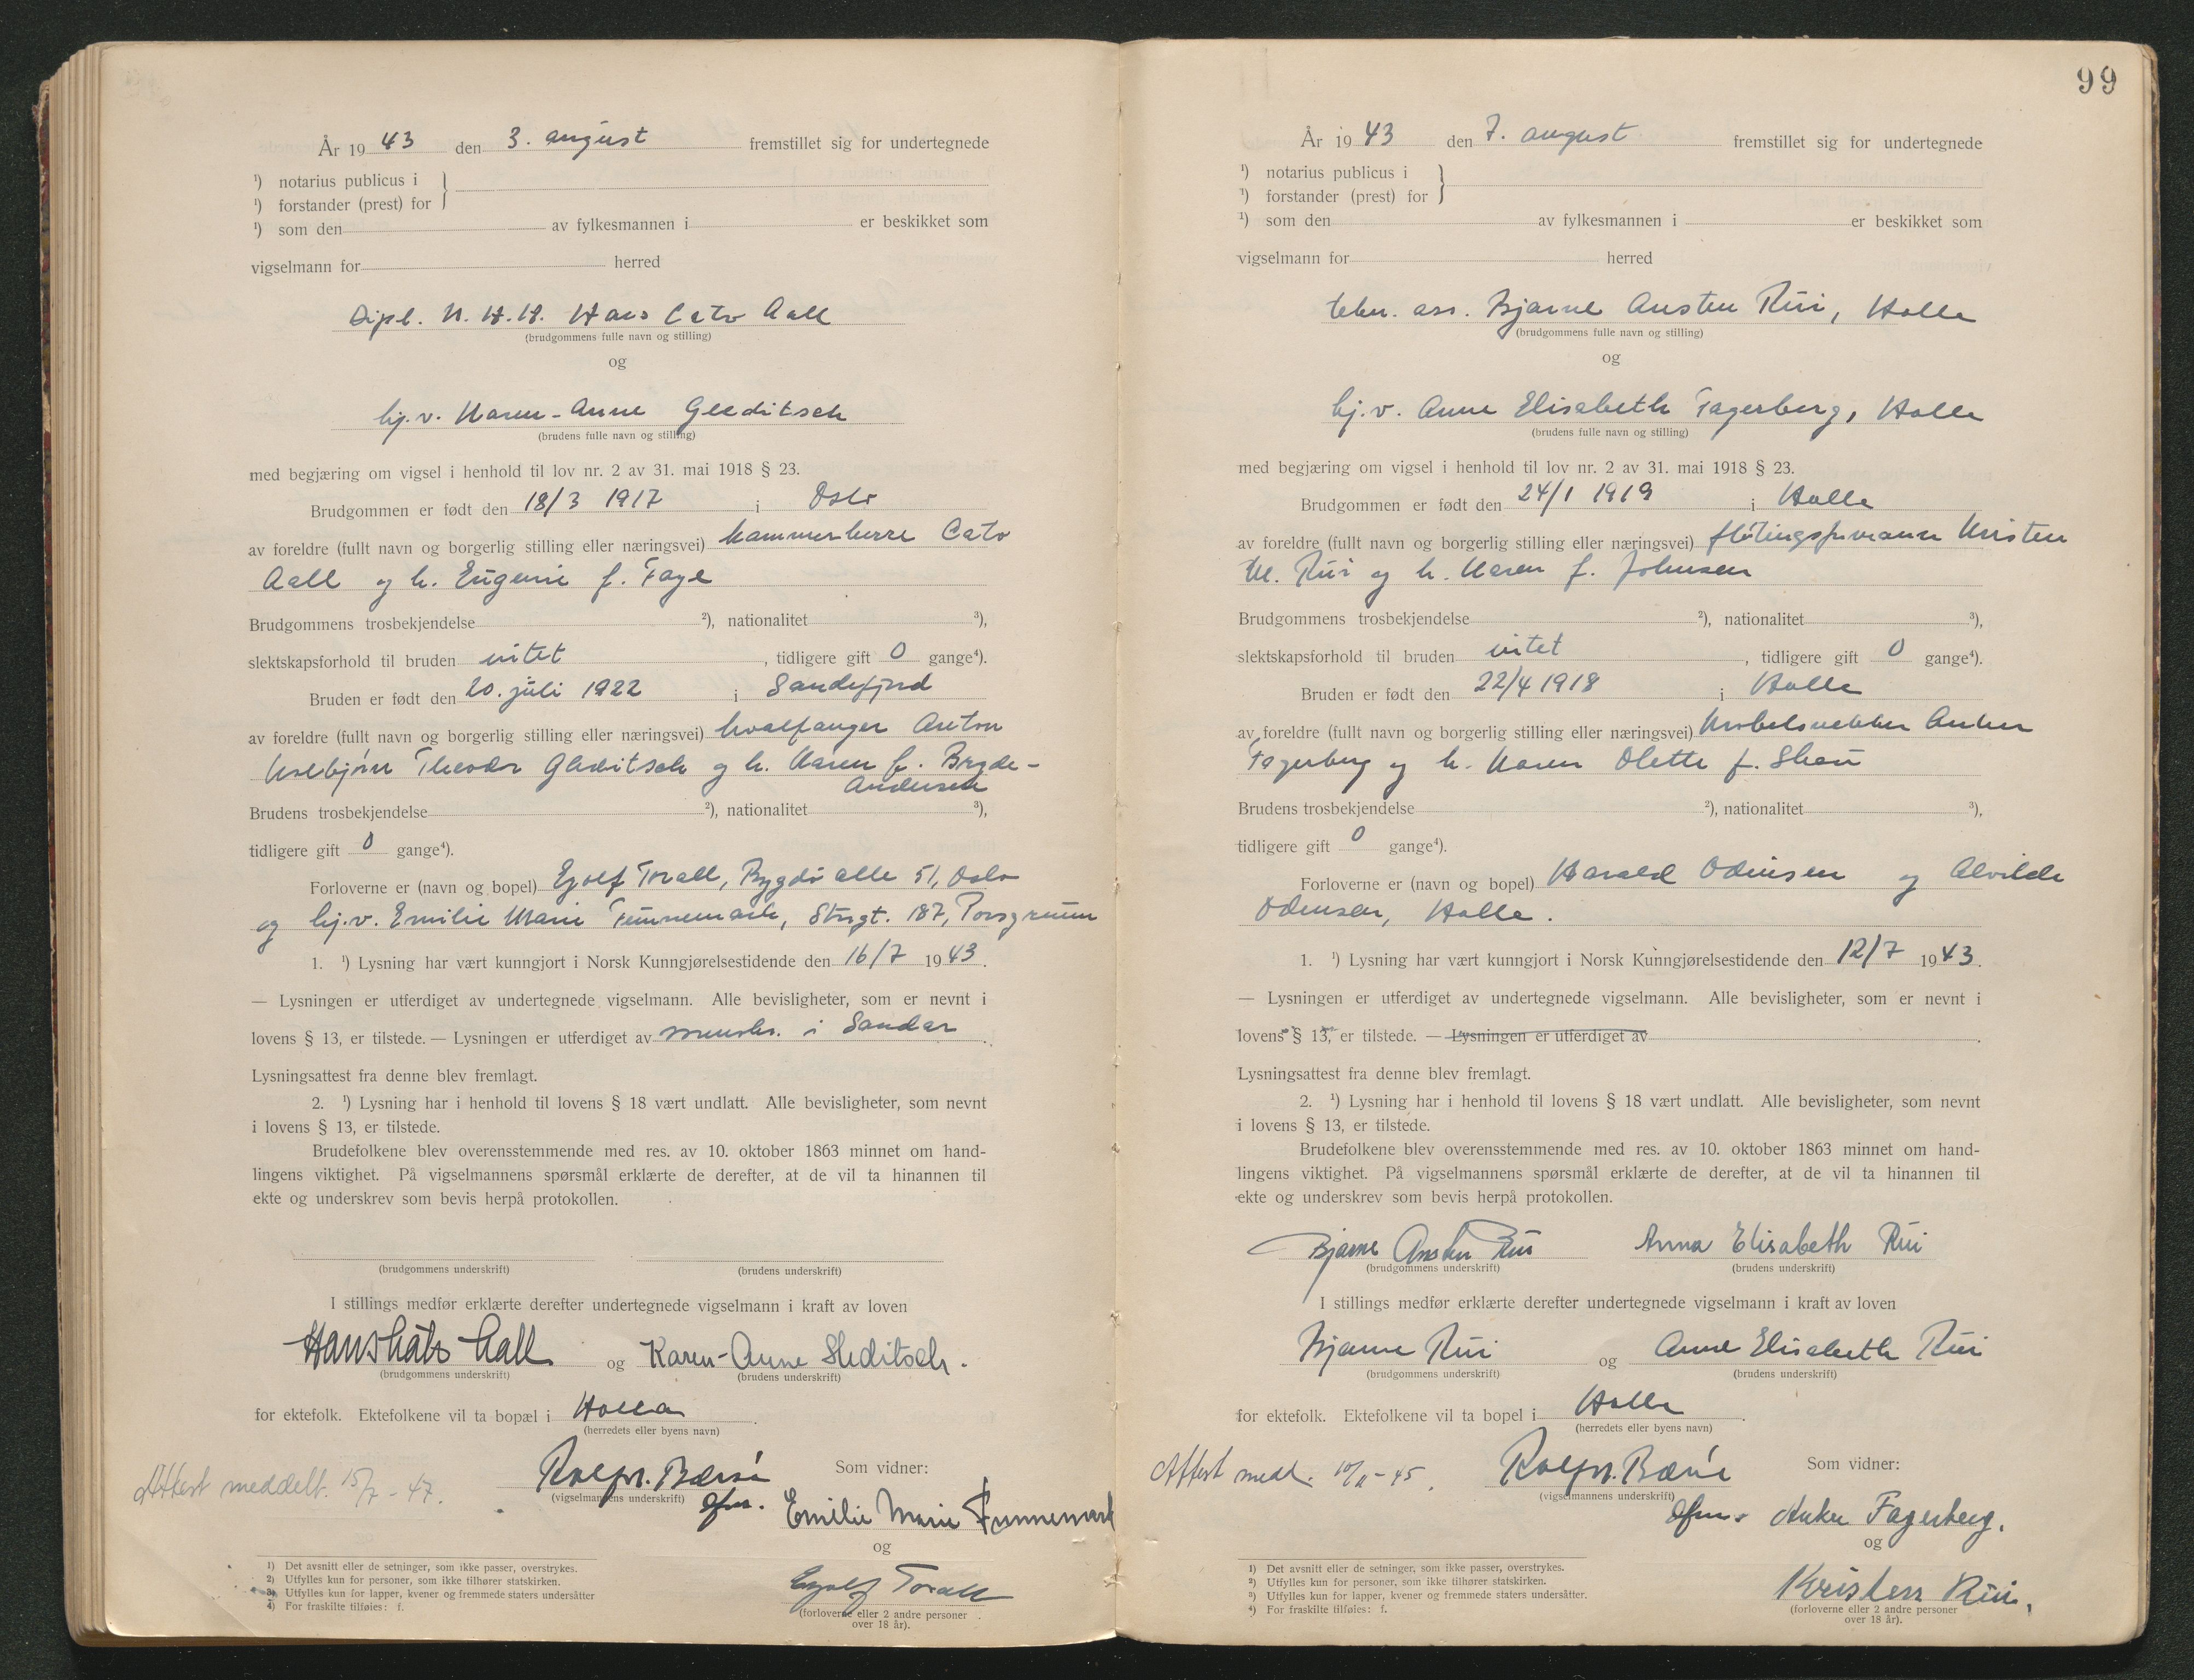 År 19 43 den 3. august fremstillet sig for undertegnede
¹) notarius publicus i
¹) forstander (prest) for
¹) som den av fylkesmannen i er beskikket som
vigselmann for herred
Dipl. N.H.H. Hans Cato Aall
(brudgommens fulle navn og stilling)
og
hj.v. Karen-Anne Gleditsch
(brudens fulle navn og stilling)
med begjæring om vigsel i henhold til lov nr. 2 av 31. mai 1918 § 23.
Brudgommen er født den 18/3 1917 i Oslo
av foreldre (fullt navn og borgerlig stilling eller næringsvei) kammerherre Cato
Aall og h. Eugenie f. Faye
Brudgommens trosbekjendelse ²), nationalitet ³),
slektskapsforhold til bruden intet, tidligere gift 0 gange⁴).
Bruden er født den 20. juli 1922 i Sandefjord
av foreldre (fullt navn og borgerlig stilling eller næringsvei) hvalfanger Anton
Kolbjørn Theodor Gleditsch og h. Karen f. Bryde-
Andersen
Brudens trosbekjendelse ²), nationalitet ³),
tidligere gift 0 gange⁴).
Forloverne er (navn og bopel) Eyolf Torall, Bygdø alle 51, Oslo
og hj.v. Emilie Marie Funnemark, Storgt. 187, Porsgrunn
1. ¹) Lysning har vært kunngjort i Norsk Kunngjørelsestidende den 16/7 1943.
— Lysningen er utferdiget av undertegnede vigselmann. Alle bevisligheter, som er nevnt i
lovens § 13, er tilstede. — Lysningen er utferdiget av i Sandar.
Lysningsattest fra denne blev fremlagt.
2. ¹) Lysning har i henhold til lovens § 18 vært undlatt. Alle bevisligheter, som nevnt
i lovens § 13, er tilstede.
Brudefolkene blev overensstemmende med res. av 10. oktober 1863 minnet om hand-
lingens viktighet. På vigselmannens spørsmål erklærte de derefter, at de vil ta hinannen til
ekte og underskrev som bevis herpå protokollen.
(brudgommens underskrift) (brudens underskrift)
I stillings medfør erklærte derefter undertegnede vigselmann i kraft av loven
Hans Cato Aall og Karen-Anne Gleditsch.
(brudgommens underskrift) (brudens underskrift)
for ektefolk. Ektefolkene vil ta bopæl i Holla.
(herredets eller byens navn)
Attest meddelt. 15/7-47.
Rolf M. Bærø Som vidner:
(vigselmannens underskrift)
Emilie Marie Funnemark
og
Eyolf Torall
(forloverne eller 2 andre personer
over 18 år).
¹) Det avsnitt eller de setninger, som ikke passer, overstrykes.
²) Utfylles kun for personer, som ikke tilhører statskirken.
³) Utfylles kun for lapper, kvener og fremmede staters undersåtter
⁴) For fraskilte tilføies: f.
99
År 19 43 den 7. august fremstillet sig for undertegnede
¹) notarius publicus i
¹) forstander (prest) for
¹) som den av fylkesmannen i er beskikket som
vigselmann for herred
ass. Bjarne Austen Rui, Holla
(brudgommens fulle navn og stilling)
og
hj.v. Anne Elisabeth Fagerberg, Holla
(brudens fulle navn og stilling)
med begjæring om vigsel i henhold til lov nr. 2 av 31. mai 1918 § 23.
Brudgommen er født den 24/1 1919 i Holla
av foreldre (fullt navn og borgerlig stilling eller næringsvei) fløtingsformann Kristen
M. Rui og h. Karen f. Johnsen
Brudgommens trosbekjendelse ²), nationalitet ³),
slektskapsforhold til bruden intet, tidligere gift 0 gange⁴).
Bruden er født den 22/4 1918 i Holla
av foreldre (fullt navn og borgerlig stilling eller næringsvei) Møbelsnekker Anker
Fagerberg og h. Karen Olette f. Skau
Brudens trosbekjendelse ²), nationalitet ³),
tidligere gift 0 gange⁴).
Forloverne er (navn og bopel) Harald Odinsen og Alvilde
Odinsen, Holla.
1. ¹) Lysning har vært kunngjort i Norsk Kunngjørelsestidende den 12/7 1943.
— Lysningen er utferdiget av undertegnede vigselmann. Alle bevisligheter, som er nevnt i
lovens § 13, er tilstede. — Lysningen er utferdiget av.
Lysningsattest fra denne blev fremlagt.
2. ¹) Lysning har i henhold til lovens § 18 vært undlatt. Alle bevisligheter, som nevnt
i lovens § 13, er tilstede.
Brudefolkene blev overensstemmende med res. av 10. oktober 1863 minnet om hand-
lingens viktighet. På vigselmannens spørsmål erklærte de derefter, at de vil ta hinannen til
ekte og underskrev som bevis herpå protokollen.
Bjarne Austen Rui Anna Elisabeth Rui
(brudgommens underskrift) (brudens underskrift)
I stillings medfør erklærte derefter undertegnede vigselmann i kraft av loven
Bjarne Rui og Anne Elisabeth Rui
(brudgommens underskrift) (brudens underskrift)
for ektefolk. Ektefolkene vil ta bopel i Holla.
(herredets eller byens navn)
Attest medd. 10/11-45.
Rolf M. Bærø Som vidner:
(vigselmannens underskrift)
Anker Fagerberg.
og
Kristen Rui.
(forloverne eller 2 andre personer
over 18 år).
¹) Det avsnitt eller de setninger, som ikke passer, overstrykes.
²) Utfylles kun for personer, som ikke tilhører statskirken.
³) Utfylles kun for lapper, kvener og fremmede staters undersåtter.
⁴) For fraskilte tilføies: f.